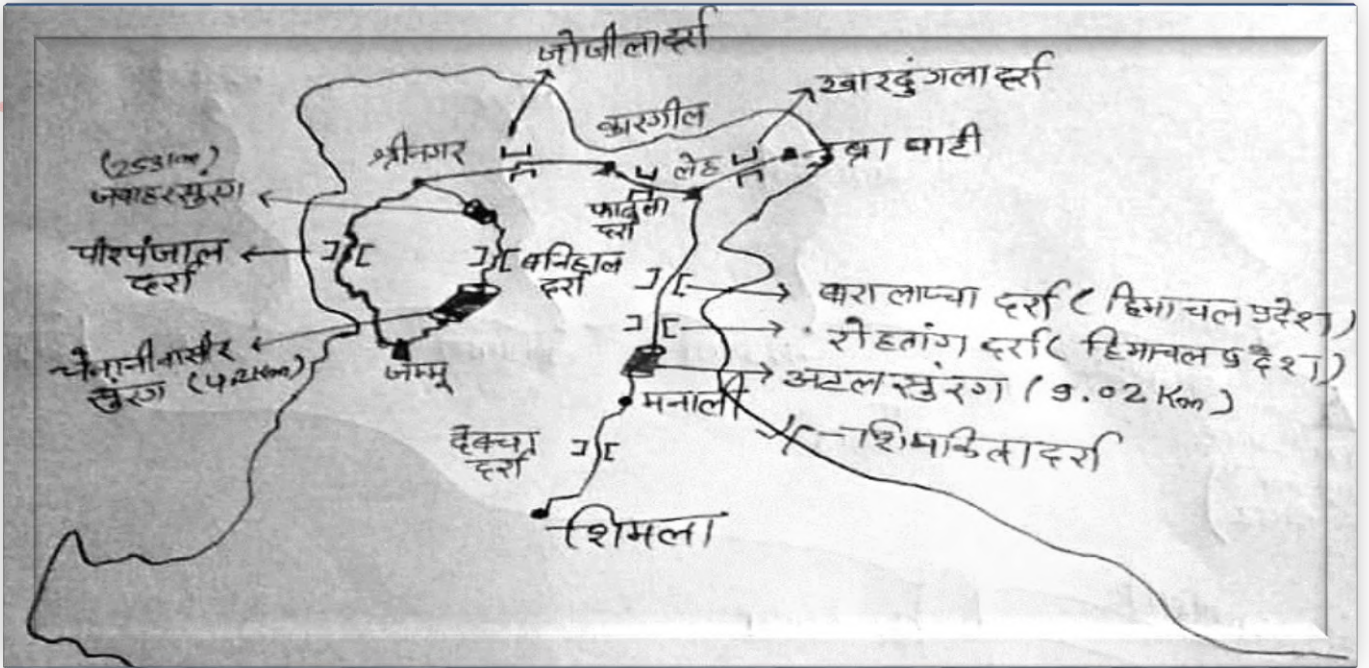 जोजीला दर्रा
खारदुंगला दर्रा
कारगील
श्रीनगर
लेह
नुब्रा घाटी
(2531m)
जवाहर सुरंग
फातुला
दर्रा
पीरपंजाल
दर्रा
बनिहाल
दर्रा
बारालाप्चा दर्रा ( हिमाचल प्रदेश )
रोहतांग दर्रा ( हिमाचल प्रदेश )
चेनानी नासौर
सुरंग (
जम्मू
अटल सुरंग ( 9.02 Km )
मनाली
देबचा
दर्रा
शिपकिला दर्रा
शिमला